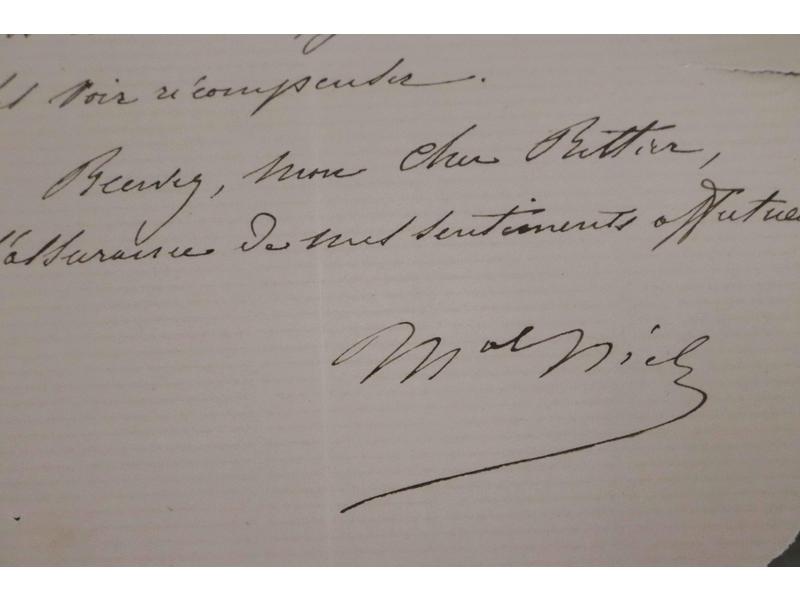 voir récompenser.
Recevez, mon cher Rittier,
l'assurance de mes sentiments affectueux
Mal Niel